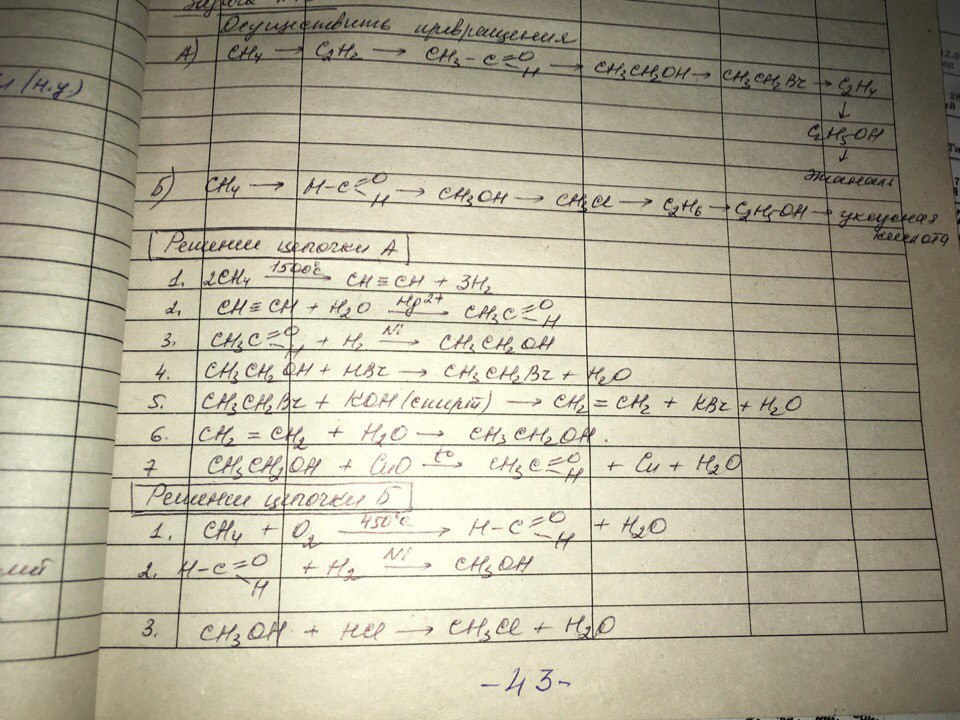 Осуществить превращения
А) CH4 → C2H2 → CH3-C=O H → CH3CH2OH → CH3CH2Br → C2H4
↓
C2H5OH
↓
этаналь
и (н.у.)
Б) CH4 → H-C=O H → CH3OH → CH3Cl → C2H6 → C2H5OH → уксусная
кислота
Решение цепочки А
1. 2CH4 1500°C → CH≡CH + 3H2
2. CH≡CH + H2O Hg2+ → CH3C=O H
3. CH3C=O H + H2 Ni → CH3CH2OH
4. CH3CH2OH + HBr → CH3CH2Br + H2O
5. CH3CH2Br + KOH (спирт) → CH2=CH2 + KBr + H2O
6. CH2=CH2 + H2O → CH3CH2OH.
7 CH3CH2OH + CuO t° → CH3C=O H + Cu + H2O
Решение цепочки Б
1. CH4 + O2 450°C → H-C=O H + H2O
2. H-C=O H + H2 Ni → CH3OH
3. CH3OH + HCl → CH3Cl + H2O
-43-